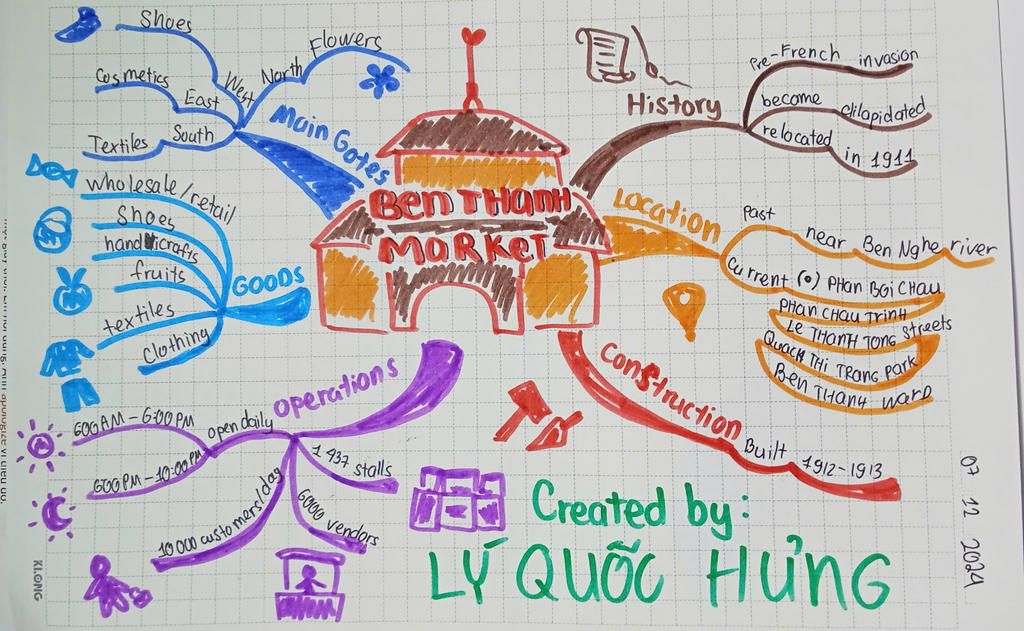 BEN THANH
MARKET
Main Gates
West
Shoes
East
Cosmetics
South
Textiles
North
Flowers
GOODS
wholesale/retail
Shoes
handicrafts
fruits
textiles
clothing
operations
open daily
600AM-6:00PM
600PM-10:00PM
10000 customers/day
6000 vendors
1 437 stalls
History
Pre-French invasion
become dilapidated
relocated in 1911
LOCATION
Past
near Ben Nghe river
Current (0) PHAN BOI CHAU
PHAN CHAU TRINH
LE THANH TONG Streets
QUACH THI TRANG PARK
BEN THANH WARD
Construction
Built 1912-1913
Created by:
LÝ QUỐC HƯNG
07 12 2024
KLONG